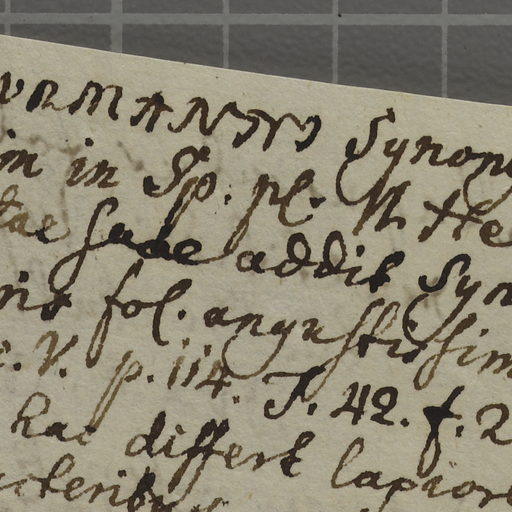 URMANNUS Synony
im in Sp. pl. N. He
tae suae addit Syn
ins fol. angustissim
e. V. p. 114. T. 42. f. 2
hac differt laxior
cteribus